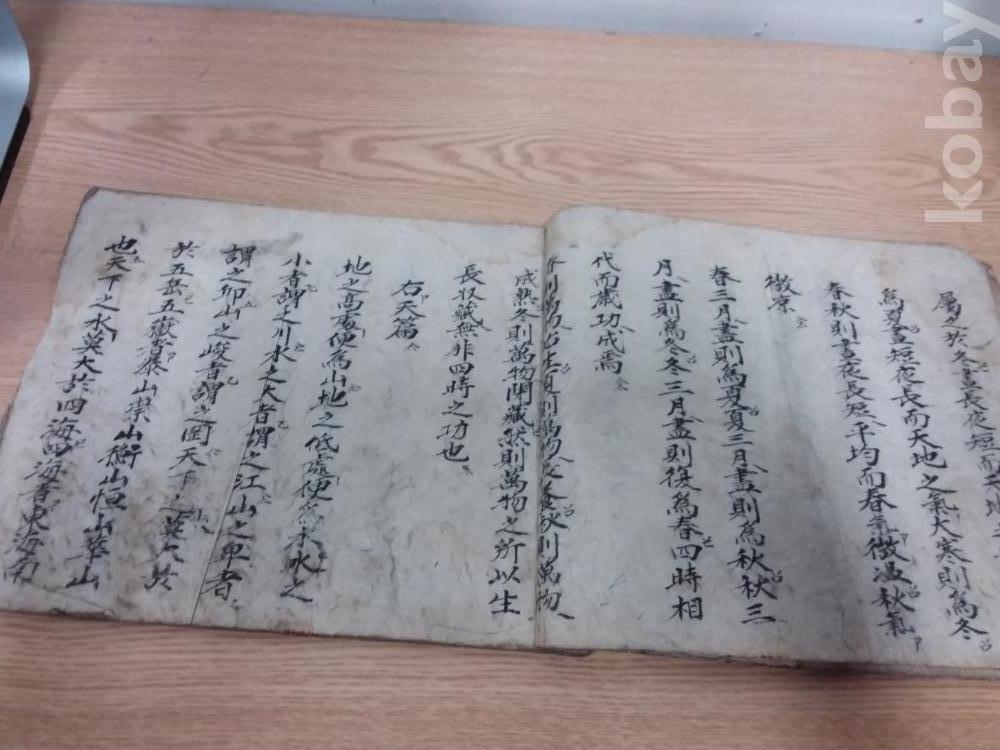 屬於冬晝長夜短而天地
為夏晝短夜長而天地之氣大寒則為冬
春秋則晝夜長短平均而春氣微溫秋氣
微凉
春三月盡則為夏夏三月盡則為秋秋三
月盡則為冬冬三月盡則復為春四時相
代而歲功成焉
春則萬物始生夏則萬物長養秋則萬物
成熟冬則萬物閉藏然則萬物之所以生
長収藏無非四時之功也
右天篇
地之高處便為山地之低處便為水水之
小者謂之川水之大者謂之江山之卑者
謂之卭山之峻者謂之岡天下之山莫大於
於五嶽五嶽者泰山崇山衡山恒山華山
也天下之水莫大於四海四海者東海南
kobay